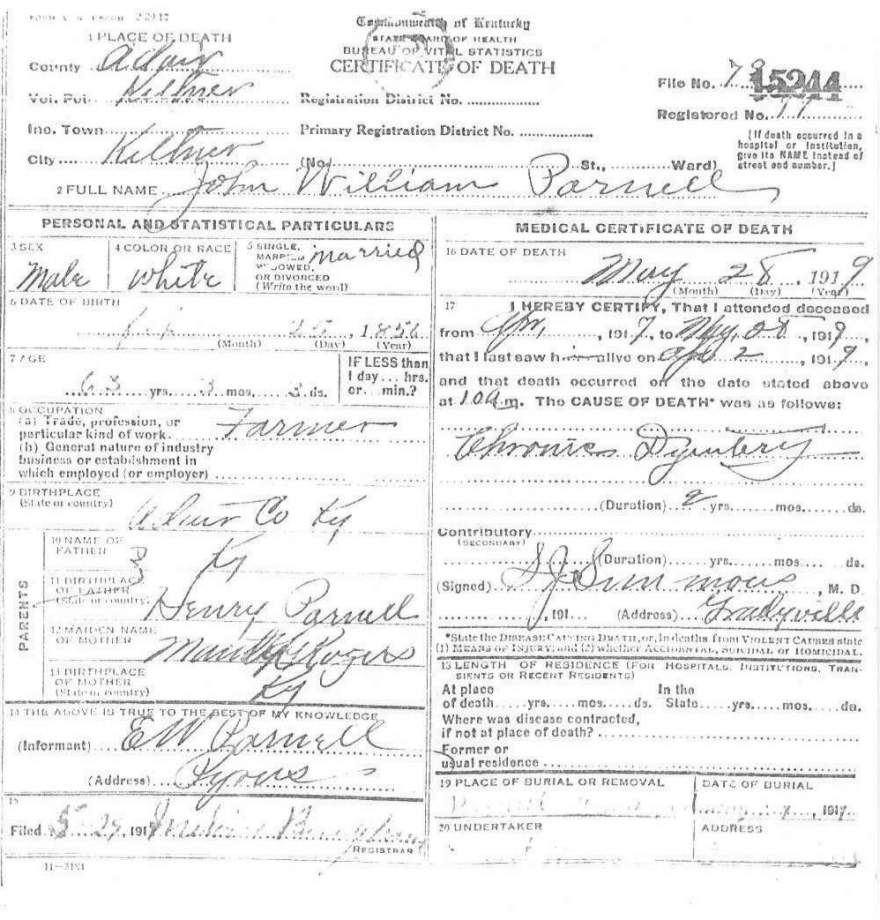 Commonwealth of Kentucky
STATE BOARD OF HEALTH
BUREAU OF VITAL STATISTICS
CERTIFICATE OF DEATH
1 PLACE OF DEATH
County Adair
Vot. Pct. Keltner Registration District No.
Inc. Town Primary Registration District No.
City Keltner (No. St., Ward)
File No. 79 15244
Registered No. 77
[If death occurred in a hospital or institution, give its NAME instead of street and number.]
2 FULL NAME John William Parnell
PERSONAL AND STATISTICAL PARTICULARS
3 SEX
Male
4 COLOR OR RACE
White
5 SINGLE, MARRIED, WIDOWED, OR DIVORCED (Write the word)
married
6 DATE OF BIRTH
25, 1856
(Month) (Day) (Year)
7 AGE
63 yrs. 3 mos. 3 ds.
IF LESS than 1 day ... hrs. or ... min.?
8 OCCUPATION
(a) Trade, profession, or particular kind of work. Farmer
(b) General nature of industry business or establishment in which employed (or employer)
9 BIRTHPLACE
(State or country) Adair Co Ky
PARENTS
10 NAME OF FATHER
Ky
11 BIRTHPLACE OF FATHER
(State or country) Henry Parnell
12 MAIDEN NAME OF MOTHER
Rogers
13 BIRTHPLACE OF MOTHER
(State or country) Ky
14 THE ABOVE IS TRUE TO THE BEST OF MY KNOWLEDGE
(Informant) E W Parnell
(Address) Pyrus
15
Filed 5-27, 191
REGISTRAR
11—3184
MEDICAL CERTIFICATE OF DEATH
16 DATE OF DEATH
May 28, 1919
(Month) (Day) (Year)
17 I HEREBY CERTIFY, That I attended deceased
from Apr, 1917, to May, 28, 1919,
that I last saw him alive on Apr 2, 1919,
and that death occurred on the date stated above
at 10 a m. The CAUSE OF DEATH* was as follows:
Chronic Dysentery
(Duration) 2 yrs. mos. ds.
Contributory
(SECONDARY)
(Duration) yrs. mos. ds.
(Signed) S J Simmons, M. D.
, 191 (Address) Gradyville
*State the DISEASE CAUSING DEATH, or, in deaths from VIOLENT CAUSES state
(1) MEANS OF INJURY; and (2) whether ACCIDENTAL, SUICIDAL or HOMICIDAL.
18 LENGTH OF RESIDENCE (FOR HOSPITALS, INSTITUTIONS, TRANSIENTS OR RECENT RESIDENTS)
At place of death yrs. mos. ds. In the State yrs. mos. ds.
Where was disease contracted,
if not at place of death?
Former or
usual residence
19 PLACE OF BURIAL OR REMOVAL
DATE OF BURIAL
, 191
20 UNDERTAKER
ADDRESS